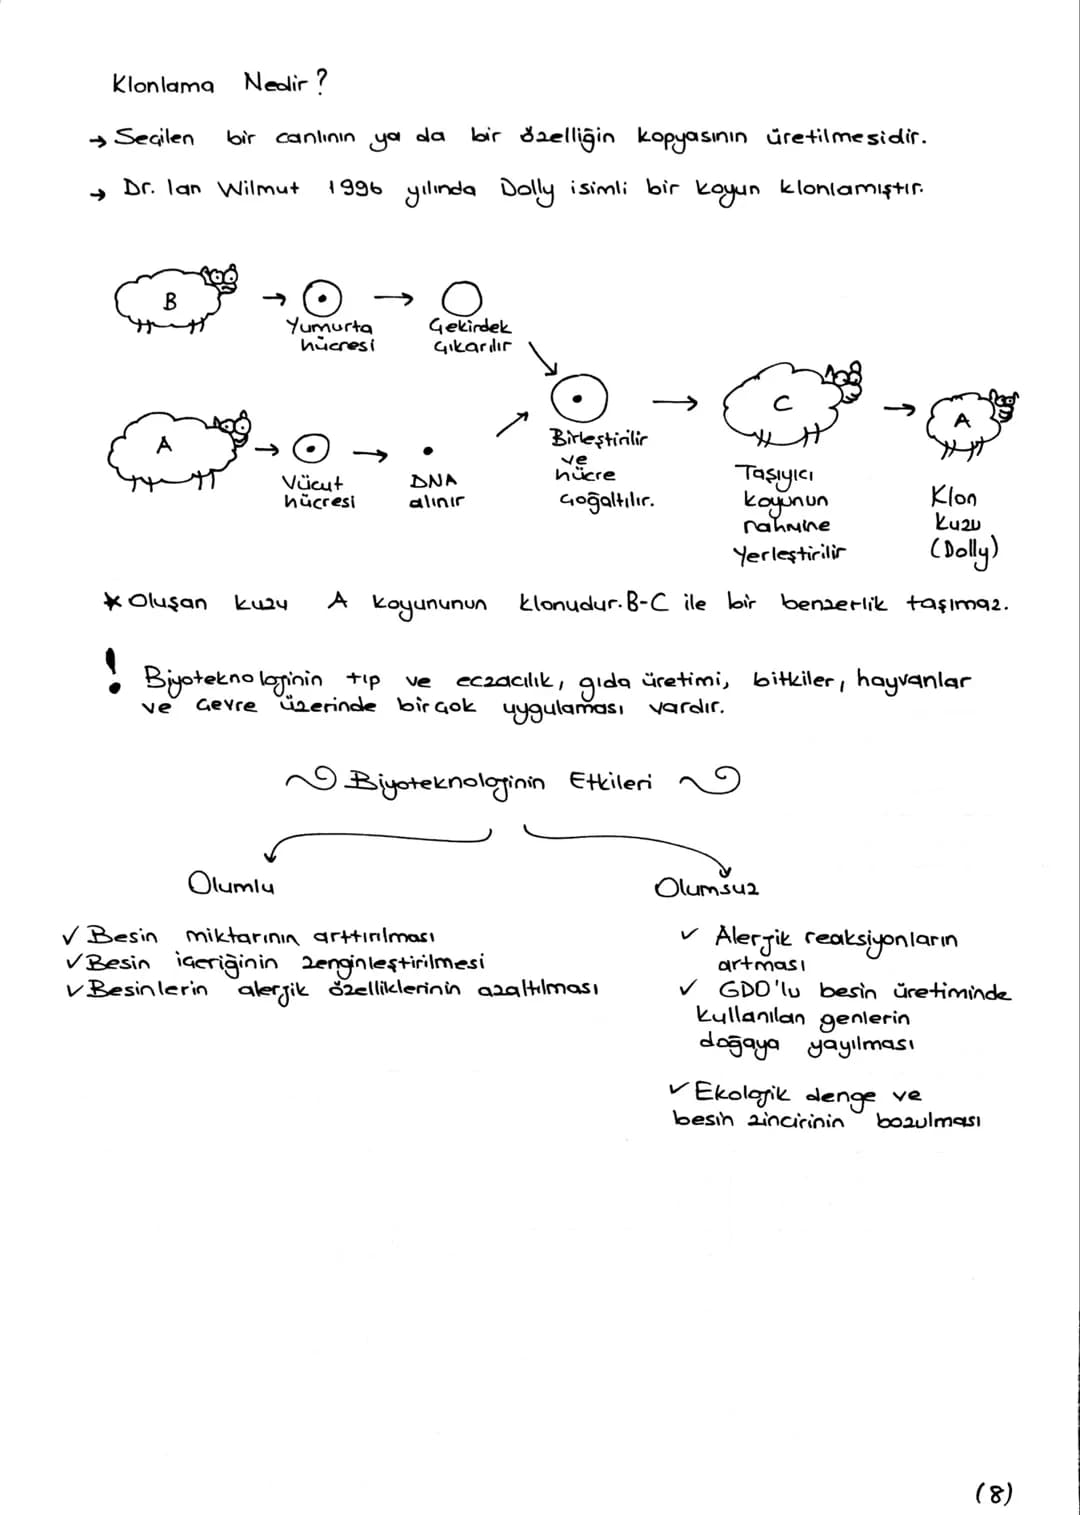 Klonlama Nedir?
→ Seçilen bir canlının ya da bir özelliğin kopyasının üretilmesidir.
→ Dr. Ian Wilmut 1996 yılında Dolly isimli bir koyun klonlamıştır.
B
Yumurta
hücresi
Çekirdek
çıkarılır
A
Vücut
hücresi
DNA
alınır
Birleştirilir
ve
hücre
çoğaltılır.
C
Taşıyıcı
koyunun
rahmine
Yerleştirilir
A
Klon
kuzu
(Dolly)
* Oluşan kuzu A koyununun klonudur. B-C ile bir benzerlik taşımaz.
! Biyoteknolojinin tıp ve eczacılık, gıda üretimi, bitkiler, hayvanlar
ve çevre üzerinde birçok uygulaması vardır.
Biyoteknolojinin Etkileri
Olumlu
✓ Besin miktarının arttırılması
✓ Besin içeriğinin zenginleştirilmesi
✓ Besinlerin alerjik özelliklerinin azaltılması
Olumsuz
✓ Alerjik reaksiyonların
artması
✓ GDO'lu besin üretiminde
kullanılan genlerin
doğaya yayılması
✓ Ekolojik denge ve
besin zincirinin bozulması
(8)